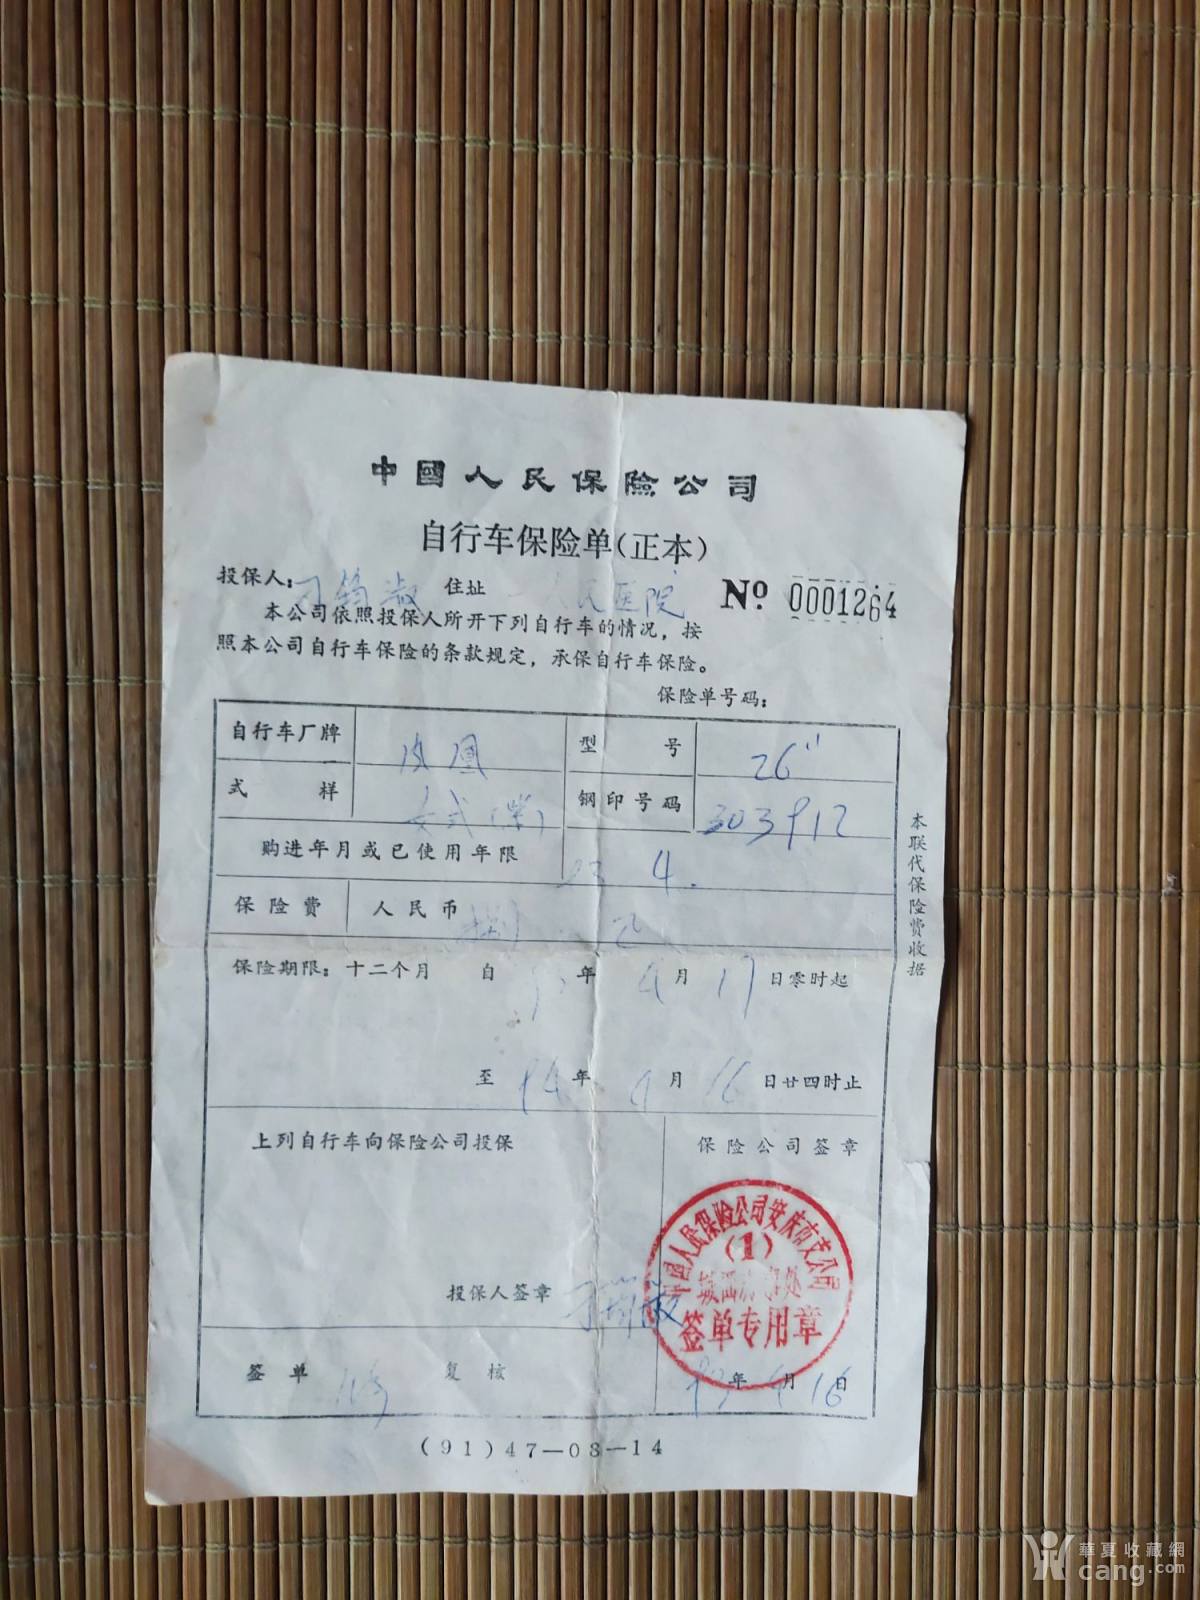 中國人民保險公司
自行车保险单(正本)
投保人: 住址 人民医院 No 0001264
本公司依照投保人所开下列自行车的情况，按
照本公司自行车保险的条款规定，承保自行车保险。
保险单号码:
自行车厂牌 凤凰 型号 26"
式样 女式(紫) 钢印号码 303912
购进年月或已使用年限 4.
保险费 人民币 捌 元
保险期限: 十二个月 自 年 4月 17日零时起
至 94年 4月 16日廿四时止
本联代保险费收据
上列自行车向保险公司投保 保险公司签章
中国人民保险公司安庆市支公司
(1)
签单专用章
投保人签章
签单 复核 93年 4月 16日
(91)47—03—14
華夏收藏網
cang.com